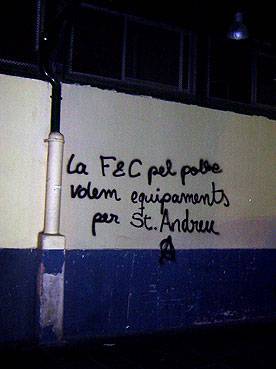 La F&C pel poble
volem equipaments
per St. Andreu